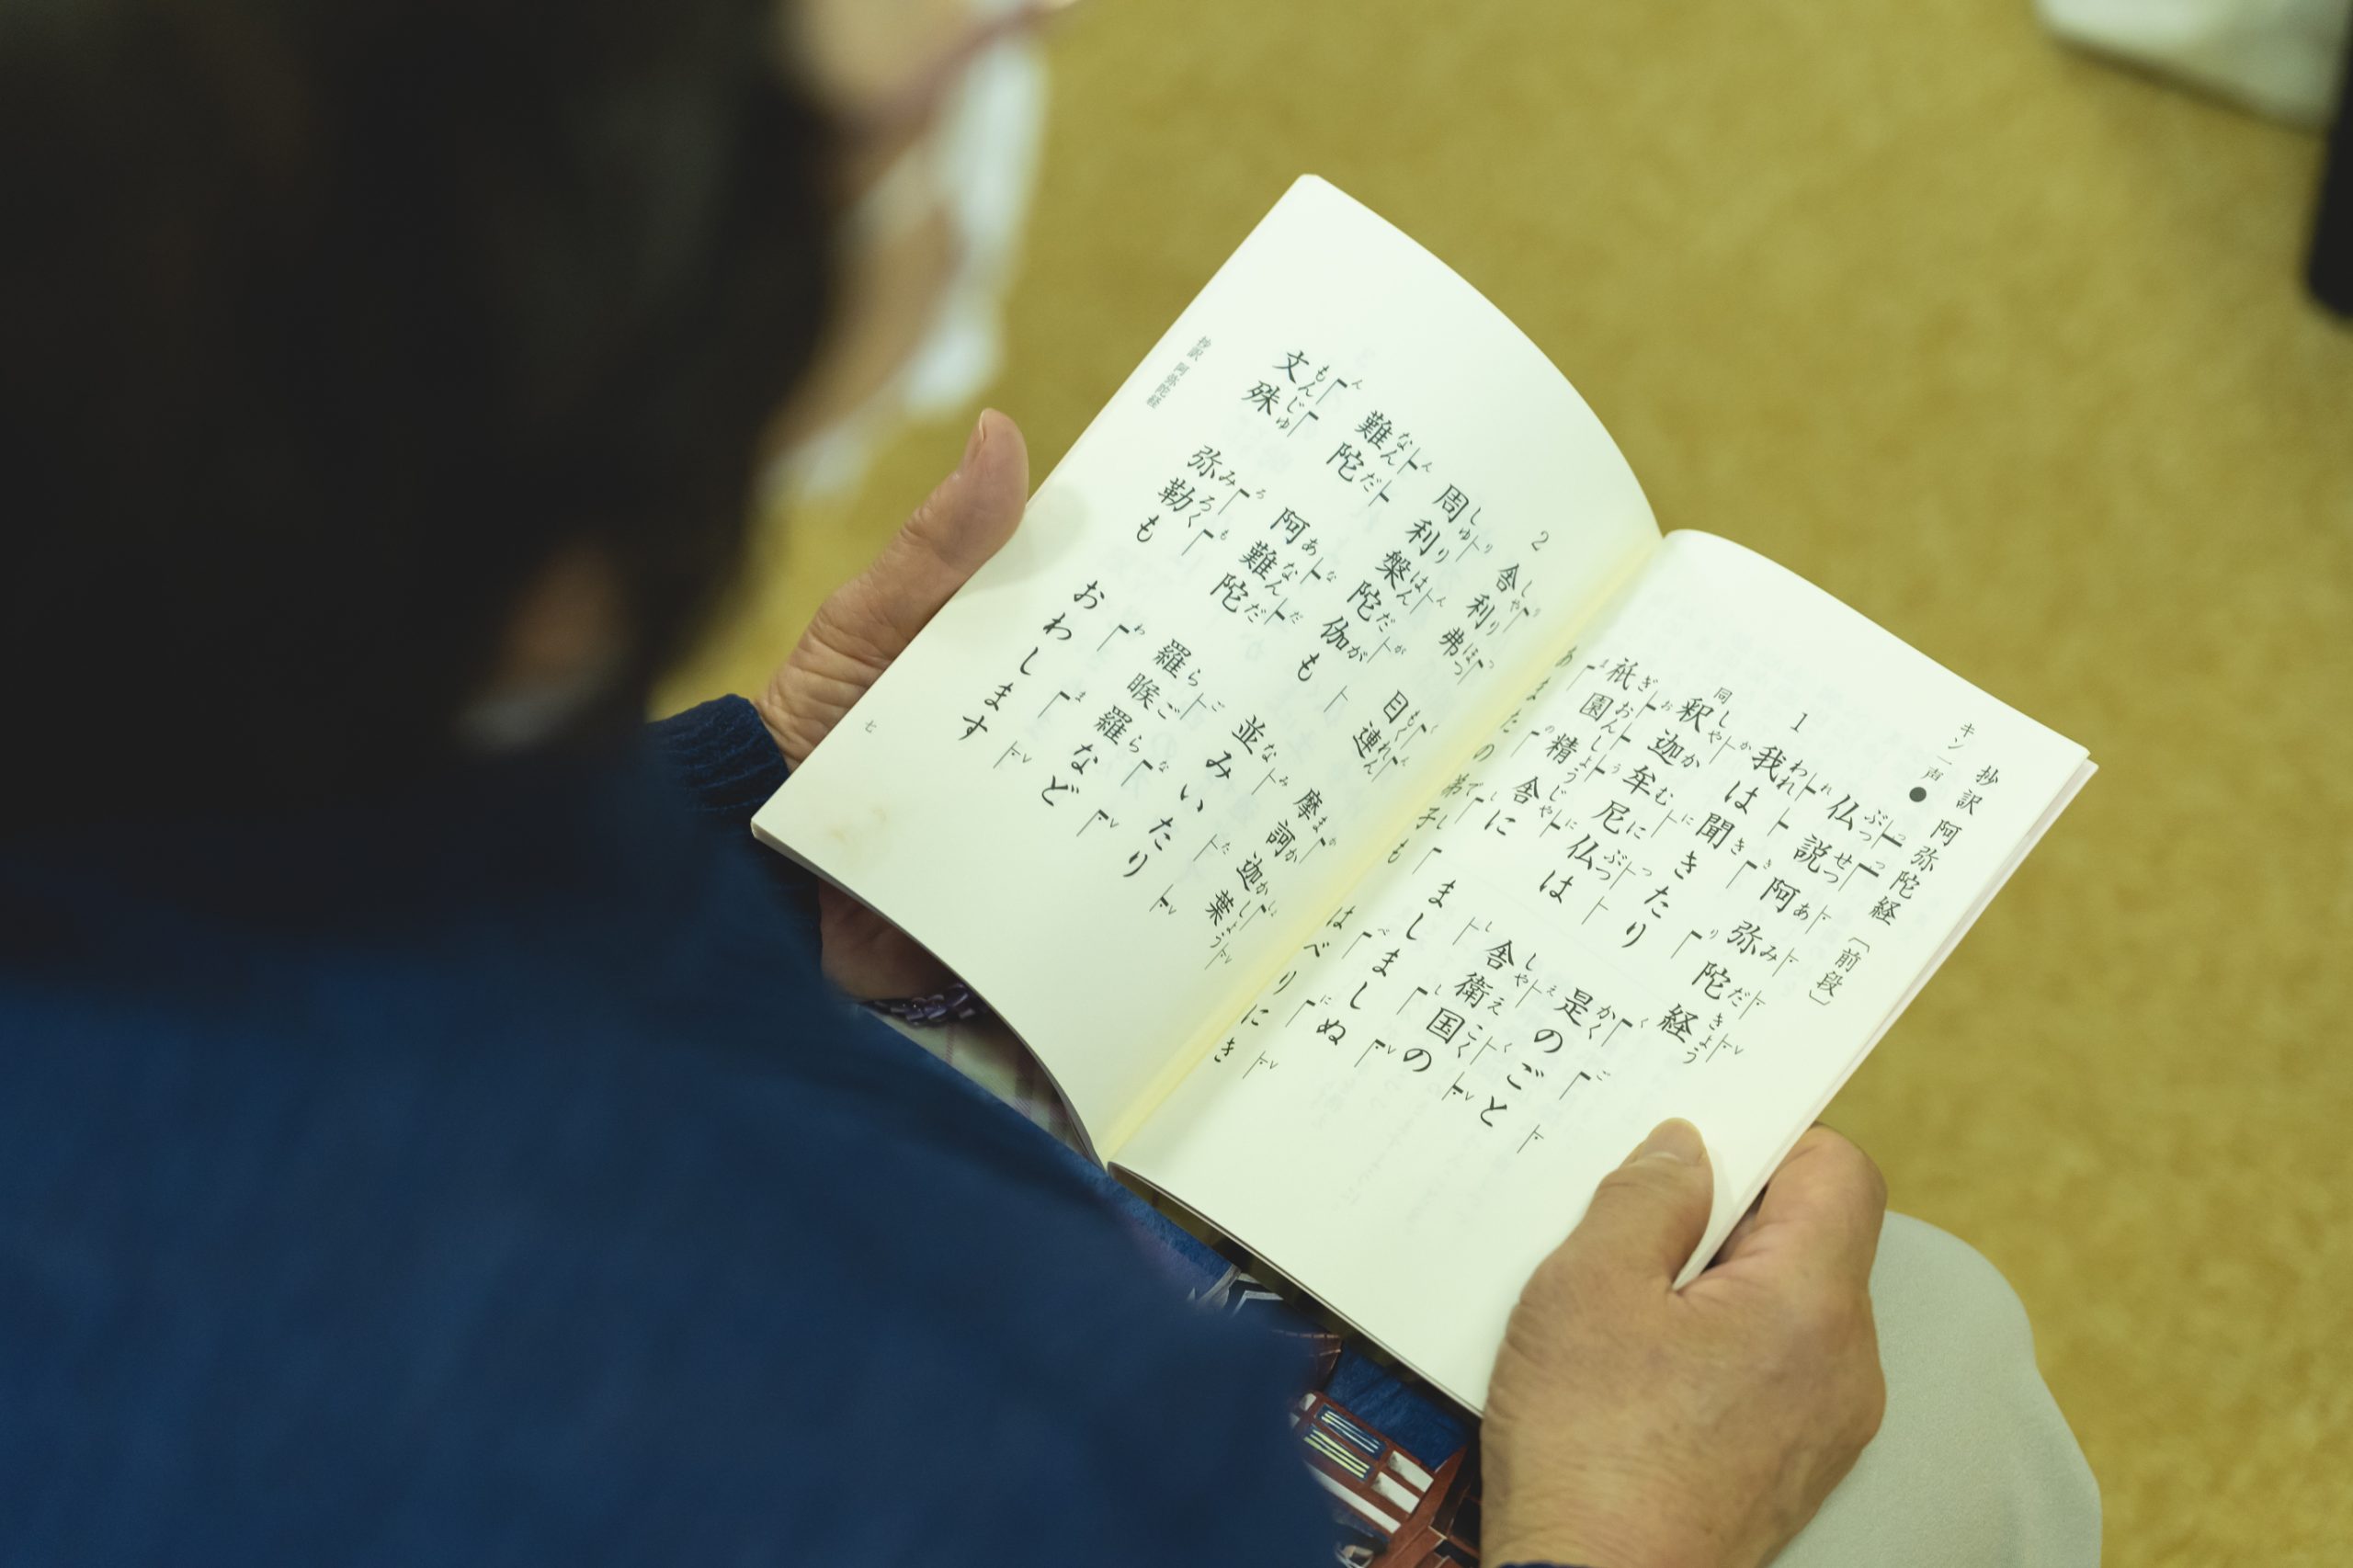 抄訳 阿弥陀経〔前段〕
キン一声●
仏説阿弥陀経
1
我は聞きたり 是のごと
同
釈迦牟尼仏は 舎衛国の
祇園精舎に ましましぬ
あまたの弟子も はべりにき
2
舎利弗 目連 摩訶迦葉
周利槃陀伽も 並みいたり
難陀 阿難陀 羅睺羅など
文殊 弥勒も おわします
抄訳 阿弥陀経
七